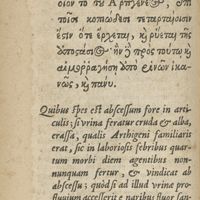 οἷον τὸ τοῦ Ἀρχιγένε
ποῖσι κοπιώδεσι τεταρταίοισιν
ἔστιν ὅτε ἔρχεται, κ̀ ῥύεται τῆς
ἀποστάσιος ἢν ἢ πρὸς τούτῳ κ̀
αἱμοῤῥαγήσῃ ἀπὸ ῥινῶν ἱκα-
νῶς, κ̀ πάνυ.
Quibus spes est abscessum fore in arti-
culis: si vrina feratur cruda & alba,
crassa, qualis Archigeni familiaris
erat, sic in laboriosis febribus quar-
tum morbi diem agentibus non-
nunquam fertur, & vindicat ab
abscessu; quòd si ad illud vrinæ pro-
fluuium accesserit è naribus fluor san-